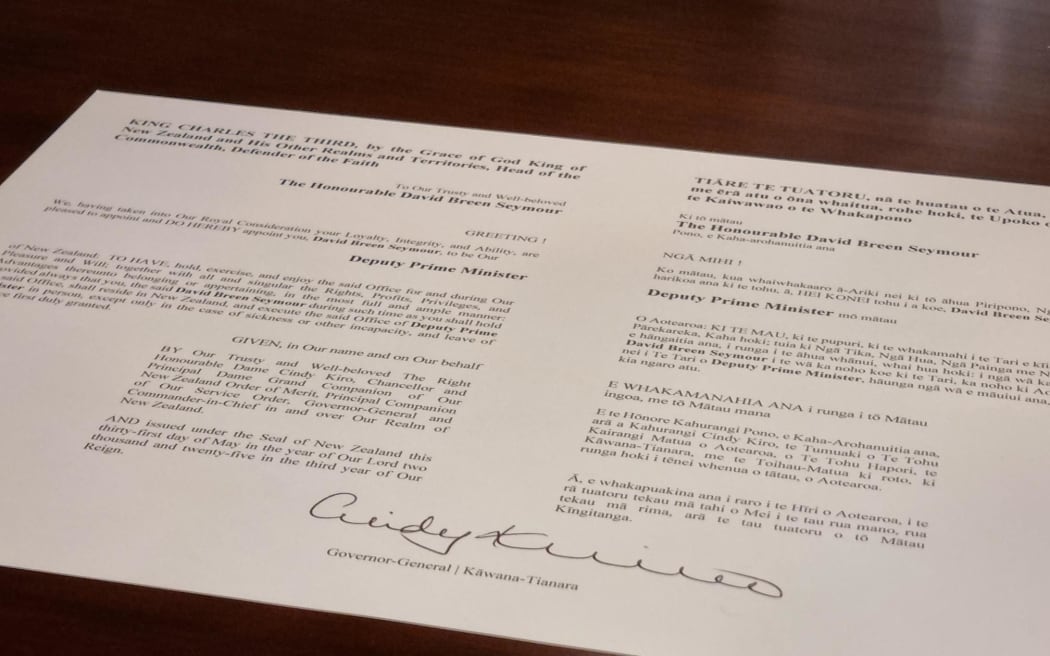 KING CHARLES THE THIRD, by the Grace of God King of
New Zealand and His Other Realms and Territories, Head of the
Commonwealth, Defender of the Faith
To Our Trusty and Well-beloved
The Honourable David Breen Seymour
GREETING !
We, having taken into Our Royal Consideration your Loyalty, Integrity, and Ability, are
pleased to appoint and DO HEREBY appoint you, David Breen Seymour, to be Our
Deputy Prime Minister
of New Zealand: TO HAVE, hold, exercise, and enjoy the said Office for and during Our
Pleasure and Will; together with all and singular the Rights, Profits, Privileges, and
Advantages thereunto belonging or appertaining, in the most full and ample manner:
always that you, the said David Breen Seymour during such time as you shall hold
said Office, shall reside in New Zealand, and execute the said Office of Deputy Prime
in person, except only in the case of sickness or other incapacity, and leave of
first duly granted.
GIVEN, in Our Name and on Our behalf
BY Our Trusty and Well-beloved The Right
Honourable Dame Cindy Kiro, Chancellor and
Principal Dame Grand Companion of Our
New Zealand Order of Merit, Principal Companion
of Our Service Order, Governor-General and
Commander-in-Chief in and over Our Realm of
New Zealand.
AND issued under the Seal of New Zealand this
thirty-first day of May in the year of Our Lord two
thousand and twenty-five in the third year of Our
Reign.
TIĀRE TE TUATORU, nā te huatau o te Atua,
me ērā atu o ōna whaitua, rohe hoki, te Upoko o
te Kaiwawao o te Whakapono
Ki tō mātau
The Honourable David Breen Seymour
Pono, e Kaha-arohanuitia ana
NGĀ MIHI !
Ko mātau, kua whaiwhakaaro ā-Ariki nei ki tō āhua Piripono,
harikoa ana ki te tohu, ā, HEI KONEI tohu i a koe, David Breen
Deputy Prime Minister mō mātau
O Aotearoa: KI TE MAU, ki te pupuri, ki te whakamahi i te Tari e
Pārekareka, Kaha hoki; tuia ki Ngā Tika, Ngā Hua, Ngā Painga me
e hāngaitia ana, i runga i te āhua whānui, whai hua hoki: i ngā wā
David Breen Seymour i te wā ka noho koe ki te Tari, ka noho ki
nei i Te Tari o Deputy Prime Minister, hāunga ngā wā e māuiui ana,
kia ngaro atu.
E WHAKAMANAHIA ANA i runga i tō Mātau
ingoa, me tō Mātau mana
E te Hōnore Kahurangi Pono, e Kaha-Arohanuitia ana,
arā a Kahurangi Cindy Kiro, te Tumuaki o Te Tohu
Kairangi Matua o Aotearoa, o Te Tohu Hapori, te
Kāwana-Tianara, me te Toihau-Matua ki roto, ki
runga hoki i tēnei whenua o tātau, o Aotearoa.
Ā, e whakapuakina ana i raro i te Hīri o Aotearoa, i te
rā tuatoru tekau mā tahi o Mei i te tau rua mano, rua
tekau mā rima, arā te tau tuatoru o tō Mātau
Kīngitanga.
Cindy Kiro
Governor-General / Kāwana-Tianara